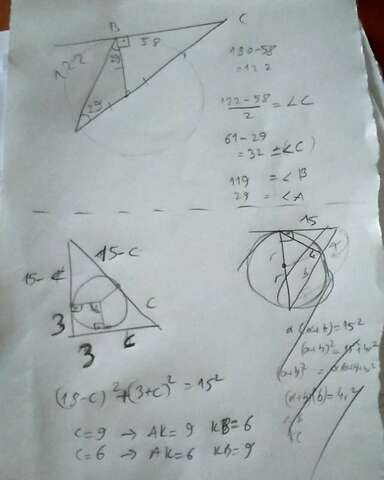 B
C
58
122
29
29
180-58
=122
122-58 / 2 = ∠C
61-29
=32 = ∠C)
119 = ∠B
29 = ∠A
15
15-c
15-c
3
c
3
c
r
r
(15-c)²+(3+c)² = 15²
c=9 → AK=9 KB=6
c=6 → AK=6 KB=9
a(a+b)=15²
(a+b)² = 15²+4r²
(a+b)(b)=4r²